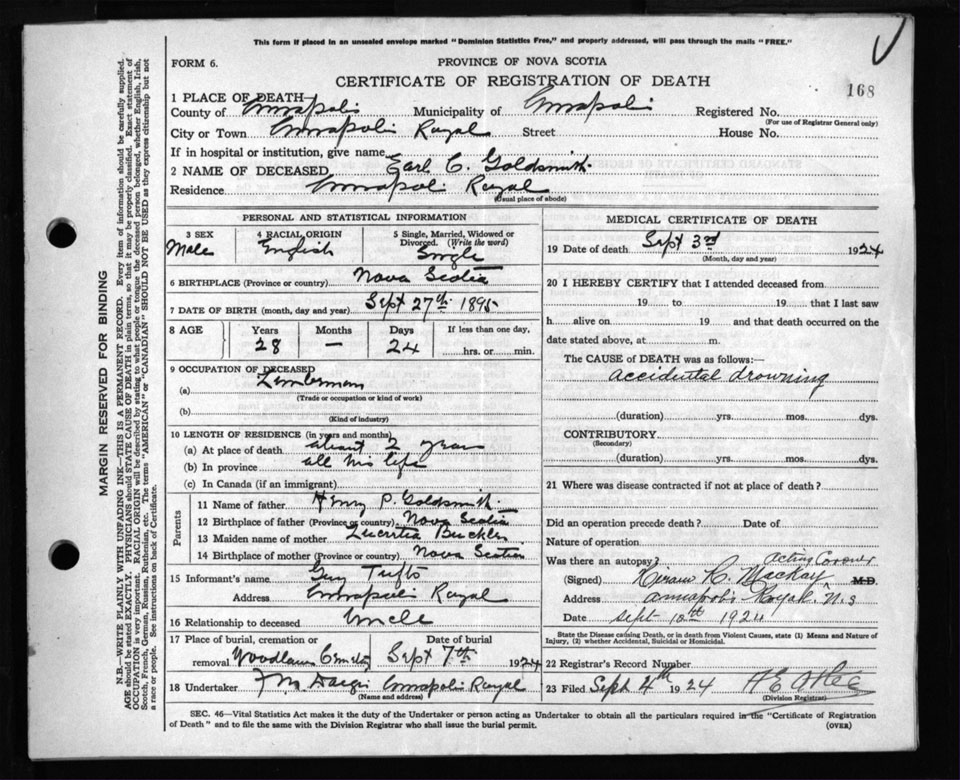 This form if placed in an unsealed envelope marked "Dominion Statistics Free," and properly addressed, will pass through the mails "FREE."
FORM 6.
PROVINCE OF NOVA SCOTIA
CERTIFICATE OF REGISTRATION OF DEATH
168
1 PLACE OF DEATH
County of Annapolis Municipality of Annapolis Registered No.
(For use of Registrar General only)
City or Town Annapolis Royal Street House No.
If in hospital or institution, give name
2 NAME OF DECEASED Earl C. Goldsmith
Residence Annapolis Royal
(Usual place of abode)
PERSONAL AND STATISTICAL INFORMATION
3 SEX
Male
4 RACIAL ORIGIN
English
5 Single, Married, Widowed or Divorced. (Write the word)
Single
6 BIRTHPLACE (Province or country) Nova Scotia
7 DATE OF BIRTH (month, day and year) Sept 27th 1895
8 AGE Years Months Days If less than one day,
28 — 24 hrs. or min.
9 OCCUPATION OF DECEASED
(a) Limberman
(Trade or occupation or kind of work)
(b)
(Kind of industry)
10 LENGTH OF RESIDENCE (in years and months)
(a) At place of death about 2 years
(b) In province all his life
(c) In Canada (if an immigrant)
Parents
11 Name of father Henry P. Goldsmith
12 Birthplace of father (Province or country) Nova Scotia
13 Maiden name of mother Lucritia Buckler
14 Birthplace of mother (Province or country) Nova Scotia
15 Informant's name Guy Tufts
Address Annapolis Royal
16 Relationship to deceased Uncle
17 Place of burial, cremation or removal Woodlawn Cemetery
Date of burial
Sept 7th 1924
18 Undertaker Annapolis Royal
(Name and address)
MEDICAL CERTIFICATE OF DEATH
19 Date of death Sept 3rd 1924
(Month, day and year)
20 I HEREBY CERTIFY that I attended deceased from
19 to 19 that I last saw
h alive on 19 and that death occurred on
date stated above, at m.
The CAUSE OF DEATH was as follows:—
accidental drowning
(duration) yrs. mos. dys.
CONTRIBUTORY
(Secondary)
(duration) yrs. mos. dys.
21 Where was disease contracted if not at place of death?
Did an operation precede death? Date of
Nature of operation
Was there an autopsy? Acting Coroner
(Signed) Hiram C. Mackay M.D.
Address Annapolis Royal. N.S
Date Sept. 10th 1924
State the Disease causing Death, or in death from Violent Causes, state (1) Means and Nature of Injury, (2) whether Accidental, Suicidal or Homicidal.
22 Registrar's Record Number
23 Filed Sept 4th 1924
(Division Registrar)
SEC. 46—Vital Statistics Act makes it the duty of the Undertaker or person acting as Undertaker to obtain all the particulars required in the "Certificate of Registration
of Death" and to file the same with the Division Registrar who shall issue the burial permit.
(OVER)
MARGIN RESERVED FOR BINDING
N.B.—WRITE PLAINLY WITH UNFADING INK—THIS IS A PERMANENT RECORD. Every item of information should be carefully supplied.
AGE should be stated EXACTLY. PHYSICIANS should STATE CAUSE OF DEATH in plain terms, so that it may be properly classified. Exact statement of
OCCUPATION is very important. RACIAL ORIGIN will be described by stating to what people or tongue the deceased person belonged, whether English, Irish,
Scotch, French, German, Russian, Ruthenian, etc. The terms "AMERICAN" or "CANADIAN" SHOULD NOT BE USED as they express citizenship but not
a race or people. See instructions on back of Certificate.